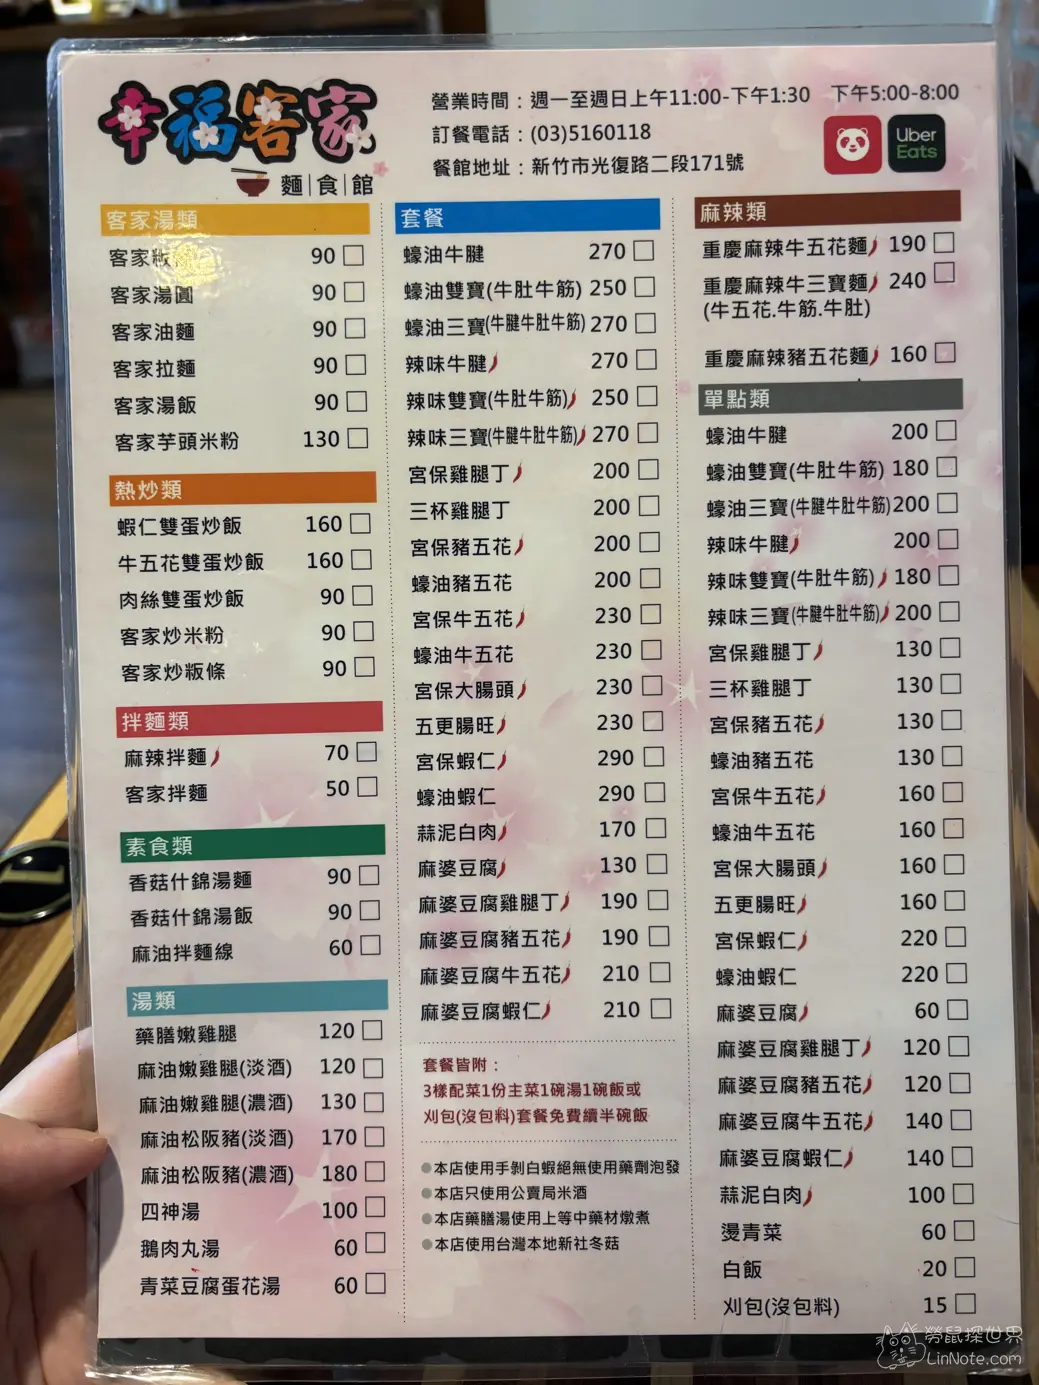 幸福客家
麵|食|館
營業時間：週一至週日上午11:00-下午1:30 下午5:00-8:00
訂餐電話：(03)5160118
餐館地址：新竹市光復路二段171號
Uber Eats
客家湯類
客家粄 90
客家湯圓 90
客家油麵 90
客家拉麵 90
客家湯飯 90
客家芋頭米粉 130
熱炒類
蝦仁雙蛋炒飯 160
牛五花雙蛋炒飯 160
肉絲雙蛋炒飯 90
客家炒米粉 90
客家炒粄條 90
拌麵類
麻辣拌麵 70
客家拌麵 50
素食類
香菇什錦湯麵 90
香菇什錦湯飯 90
麻油拌麵線 60
湯類
藥膳嫩雞腿 120
麻油嫩雞腿(淡酒) 120
麻油嫩雞腿(濃酒) 130
麻油松阪豬(淡酒) 170
麻油松阪豬(濃酒) 180
四神湯 100
鵝肉丸湯 60
青菜豆腐蛋花湯 60
套餐
蠔油牛腱 270
蠔油雙寶(牛肚牛筋) 250
蠔油三寶(牛腱牛肚牛筋) 270
辣味牛腱 270
辣味雙寶(牛肚牛筋) 250
辣味三寶(牛腱牛肚牛筋) 270
宮保雞腿丁 200
三杯雞腿丁 200
宮保豬五花 200
蠔油豬五花 200
宮保牛五花 230
蠔油牛五花 230
宮保大腸頭 230
五更腸旺 230
宮保蝦仁 290
蠔油蝦仁 290
蒜泥白肉 170
麻婆豆腐 130
麻婆豆腐雞腿丁 190
麻婆豆腐豬五花 190
麻婆豆腐牛五花 210
麻婆豆腐蝦仁 210
套餐皆附：
3樣配菜1份主菜1碗湯1碗飯或
刈包(沒包料)套餐免費續半碗飯
●本店使用手剝白蝦絕無使用藥劑泡發
●本店只使用公賣局米酒
●本店藥膳湯使用上等中藥材燉煮
●本店使用台灣本地新社冬菇
麻辣類
重慶麻辣牛五花麵 190
重慶麻辣牛三寶麵 240
(牛五花.牛筋.牛肚)
重慶麻辣豬五花麵 160
單點類
蠔油牛腱 200
蠔油雙寶(牛肚牛筋) 180
蠔油三寶(牛腱牛肚牛筋) 200
辣味牛腱 200
辣味雙寶(牛肚牛筋) 180
辣味三寶(牛腱牛肚牛筋) 200
宮保雞腿丁 130
三杯雞腿丁 130
宮保豬五花 130
蠔油豬五花 130
宮保牛五花 160
蠔油牛五花 160
宮保大腸頭 160
五更腸旺 160
宮保蝦仁 220
蠔油蝦仁 220
麻婆豆腐 60
麻婆豆腐雞腿丁 120
麻婆豆腐豬五花 120
麻婆豆腐牛五花 140
麻婆豆腐蝦仁 140
蒜泥白肉 100
燙青菜 60
白飯 20
刈包(沒包料) 15
勞鼠探世界
LinNote.com